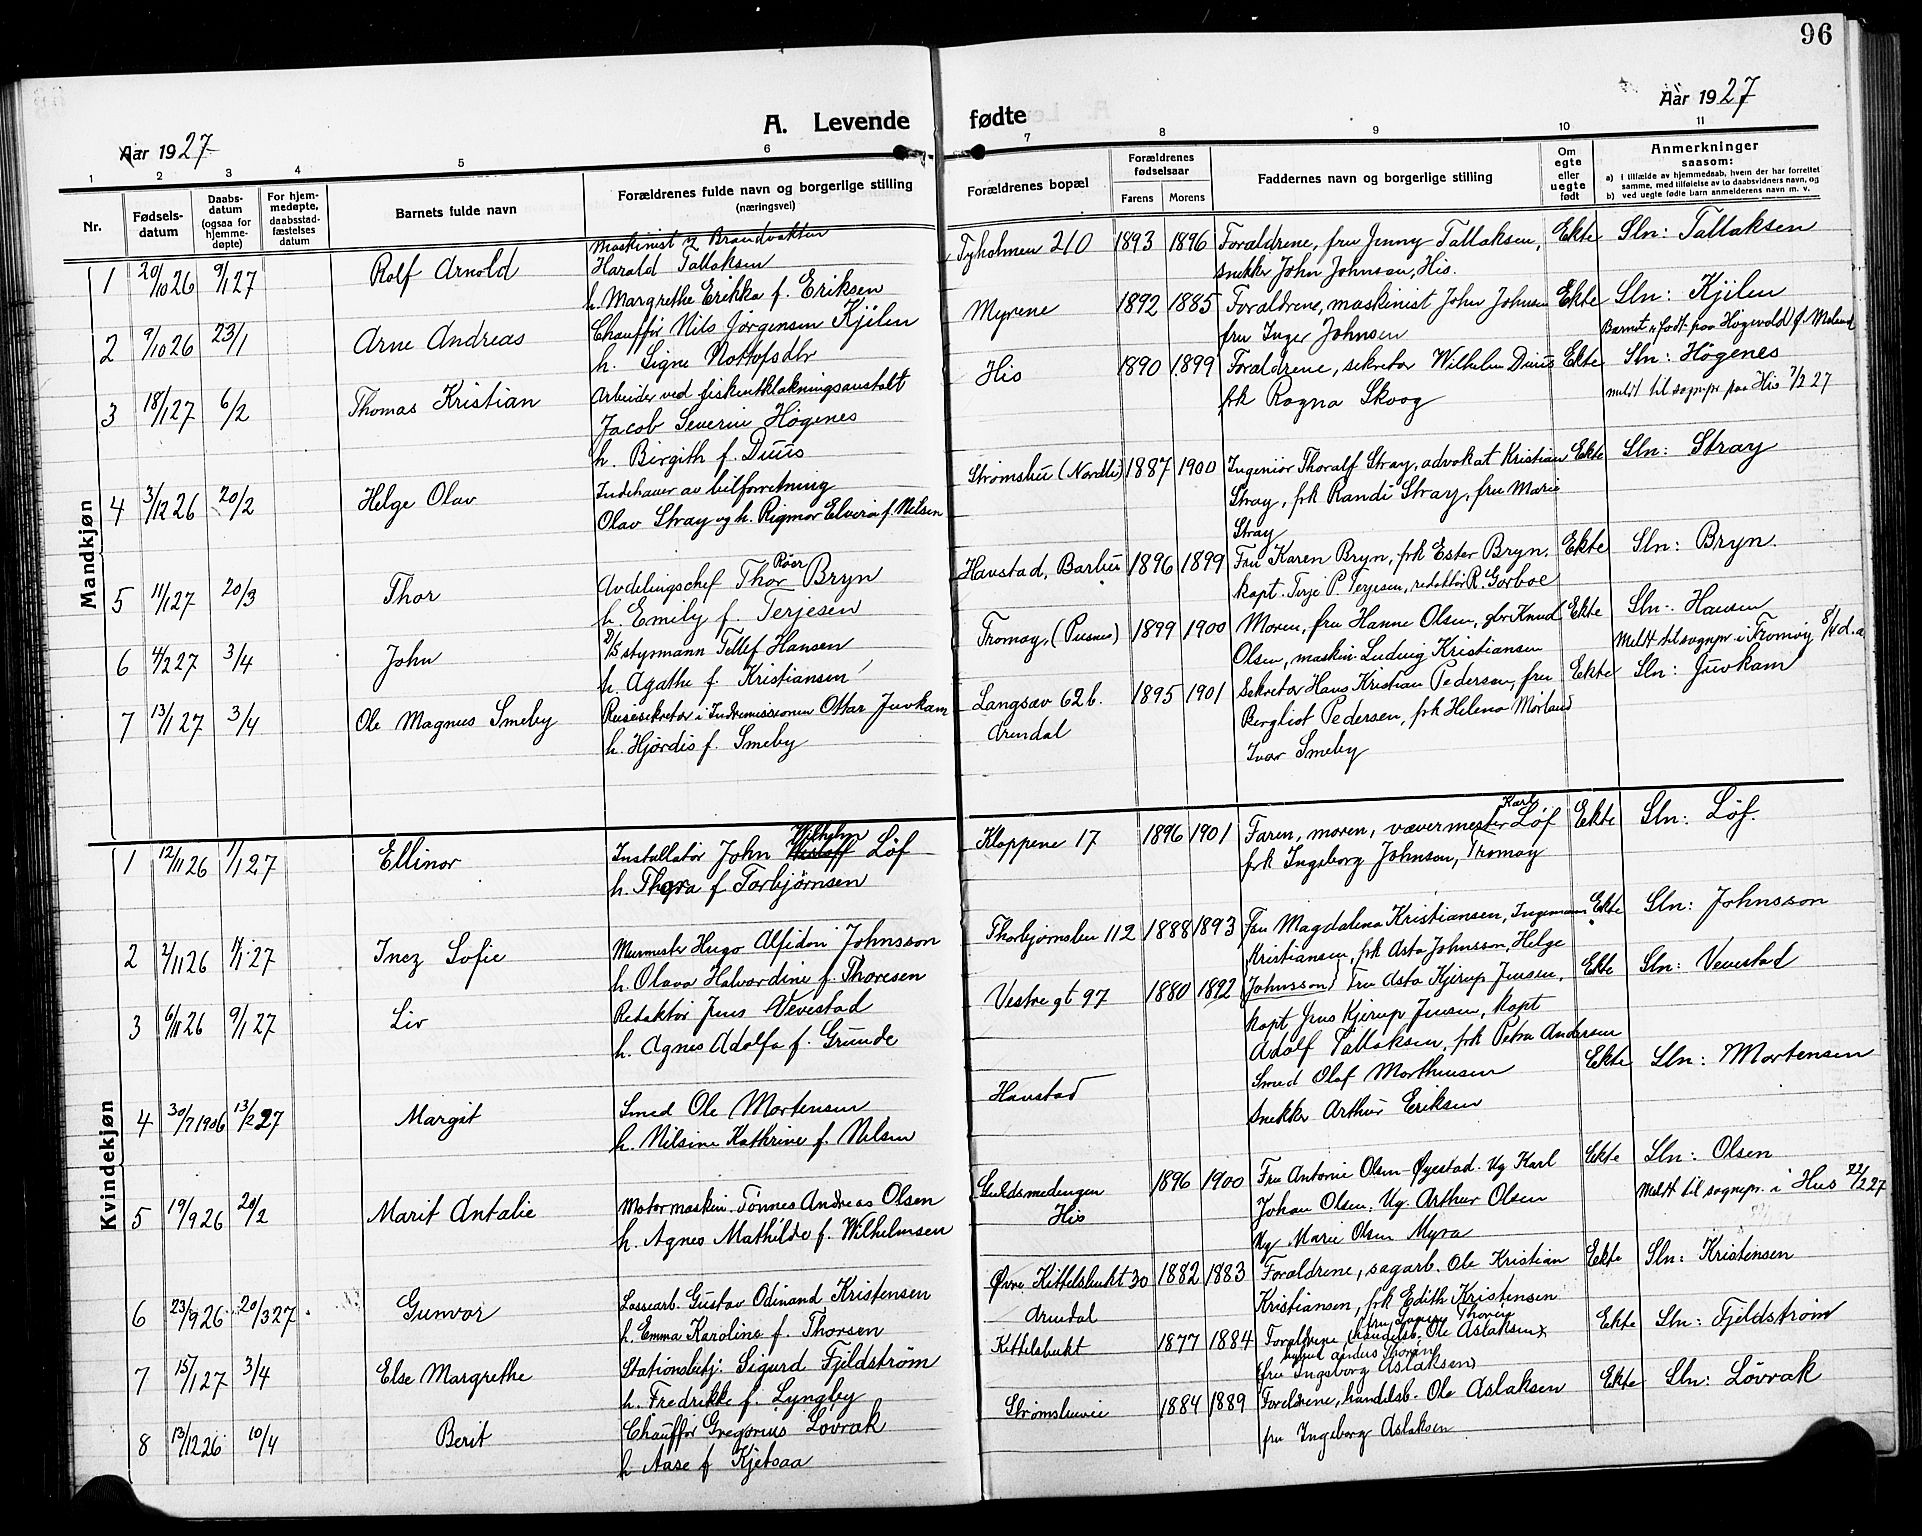 96
Aar 1927
A. Levende fødte
Aar 1927
1 2 3 4 5 6 7 8 9 10 11
Nr.
Fødsels-
datum
Daabs-
datum
(ogsaa for
hjemme-
døpte)
For hjem-
medøpte,
daabsstad-
fæstelses
datum
Barnets fulde navn
Forældrenes fulde navn og borgerlige stilling
(næringsvei)
Forældrenes bopæl
Forældrenes
fødselsaar
Farens Morens
Faddernes navn og borgerlige stilling
Om
egte
eller
uegte
født
Anmerkninger
saasom:
a) I tilfælde av hjemmedaab, hvem der har forrettet
samme, med tilføielse av to daabsvidners navn, og
b) ved uegte fødte barn anmelderens navn m. v.
Mandkjøn
1 20/10 26 9/1 27 Rolf Arnold
Maskinist v Brandvakten
Harald Tallaksen
h. Margrethe Erikka f. Eriksen
Tyholmen 210 1893 1896
Foraldrene, fru Jenny Tallaksen,
snekker John Johnsen, His.
Ekte Sln: Tallaksen
2 9/10 26 23/1 Arne Andreas
Chauffør Nils Jørgensen Kjilen
h. Signe Nottofsdtr
Myrene 1892 1885
Foraldrene, maskinist John Johnsen
fru Inger Johnsen
Ekte Sln: Kjilen
Barnet er født paa Høgevold f. Moland
3 18/1 27 6/2 Thomas Kristian
Arbeider ved fiskeutklakningsanstalt
Jacob Severin Høgenes
h. Birgith f. Duus
His 1890 1899
Foraldrene, sekretær Wilhelm Duus
frk Ragna Skoog
Ekte Sln: Høgenes
meldt til sognepr paa His 7/2 27
4 3/12 26 20/2 Helge Olav
Indehaver av bilforretning
Olav Stray og h. Rigmor Elvira f. Nilsen
Strømsbu (Nordli) 1887 1900
Ingeniør Thoralf Stray, advokat Kristian
Stray, frk Randi Stray, fru Marie
Stray
Ekte Sln: Stray
5 11/1 27 20/3 Thor
Avdelingschef Thor Roer Bryn
h. Emily f. Terjesen
Havstad, Barbu 1896 1899
Fru Karen Bryn, frk Ester Bryn,
kapt. Terje P. Terjesen, redaktør R. Gorboe
Ekte Sln: Bryn.
6 4/2 27 3/4 John
D/S styrmann Tellef Hansen
h. Agathe f. Kristiansen
Tromøy, (Pusnes) 1899 1900
Moren, fru Hanne Olsen, gbr Knud
Olsen, maskin. Ludvig Kristiansen
Ekte Sln: Hansen
Meldt til sognepr i Tromøy 8/4 d.a.
7 13/1 27 3/4 Ole Magnus Smeby
Reisesekretær i Indremissionen Ottar Juvkam
h. Hjørdis f. Smeby
Langsæv 62b.
Arendal
1895 1901
Sekretær Hans Kristian Pedersen, fru
Bergliot Pedersen, frk Helena Mørland
Ivar Smeby
Ekte Sln: Juvkam
Kvindekjøn
1 12/11 26 1/1 27 Ellinor
Installatør John Wilhelm Løf
h. Thora f. Torbjørnsen
Kloppene 17 1896 1901
Faren, moren, vævermester Karl Løf
frk Ingeborg Johnsen, Tromøy
Ekte Sln: Løf.
2 4/11 26 1/1 27 Inez Sofie
Murmester Hugo Alfidon Johnsson
h. Olava Halvardine f. Thoresen
Thorbjørnsbu 112 1888 1893
Fru Magdalena Kristiansen, Ingemann
Kristiansen, frk Asta Johnsson, Helge
Johnsson
Ekte Sln: Johnsson
3 6/11 26 9/1 27 Liv
Redaktør Jens Vevestad
h. Agnes Adolfa f. Grunde
Vestre gt 97 1880 1892
Fru Asta Kjerup Jensen,
kapt Jens Kjerup Jensen, kapt
Adolf Tallaksen, frk Petra Andersen
Ekte Sln: Vevestad
4 30/7 1906 13/2 27 Margit
Smed Ole Mortensen
h. Nilsine Kathrine f. Nilsen
Havstad
Smed Olaf Morthensen
Snekker Arthur Eriksen
Ekte Sln: Mortensen
5 19/9 26 20/2 Marit Antalie
Motormaskin. Tønnes Andreas Olsen
h. Agnes Mathilde f. Wilhelmsen
Guldsmedengen
His
1896 1900
Fru Antonie Olsen Øyestad. Ug Karl
Johan Olsen. Ug. Arthur Olsen
Ug Marie Olsen Myra
Ekte Sln: Olsen
Meldt til sognepr. i Hus 22/2 27
6 23/9 26 20/3 27 Gunvor
Lossearb. Gustav Odinand Kristensen
h. Emma Karoline f. Thorsen
Øvre Kittelsbukt 30
Arendal
1882 1883
Foraldrene, sagarb. Ole Kristian
Kristiansen, frk Edith Kristensen
Ekte Sln: Kristensen
7 15/1 27 3/4 Else Margrethe
Stationsbetj. Sigurd Fjeldstrøm
h. Fredrikke f. Lyngby
Kittelsbukt 1877 1884
Foraldrene (handelsb. Ole Aslaksen
fru Ingeborg Aslaksen)
Ekte Sln: Fjeldstrøm
8 13/12 26 10/4 Berit
Chauffør Gregorius Løvrak
h Aase f Kjetsaa
Strømsbuvei 1884 1889
Foreldrene, handelsb. Ole Aslaksen
fru Ingeborg Aslaksen
Ekte Sln: Løvrak